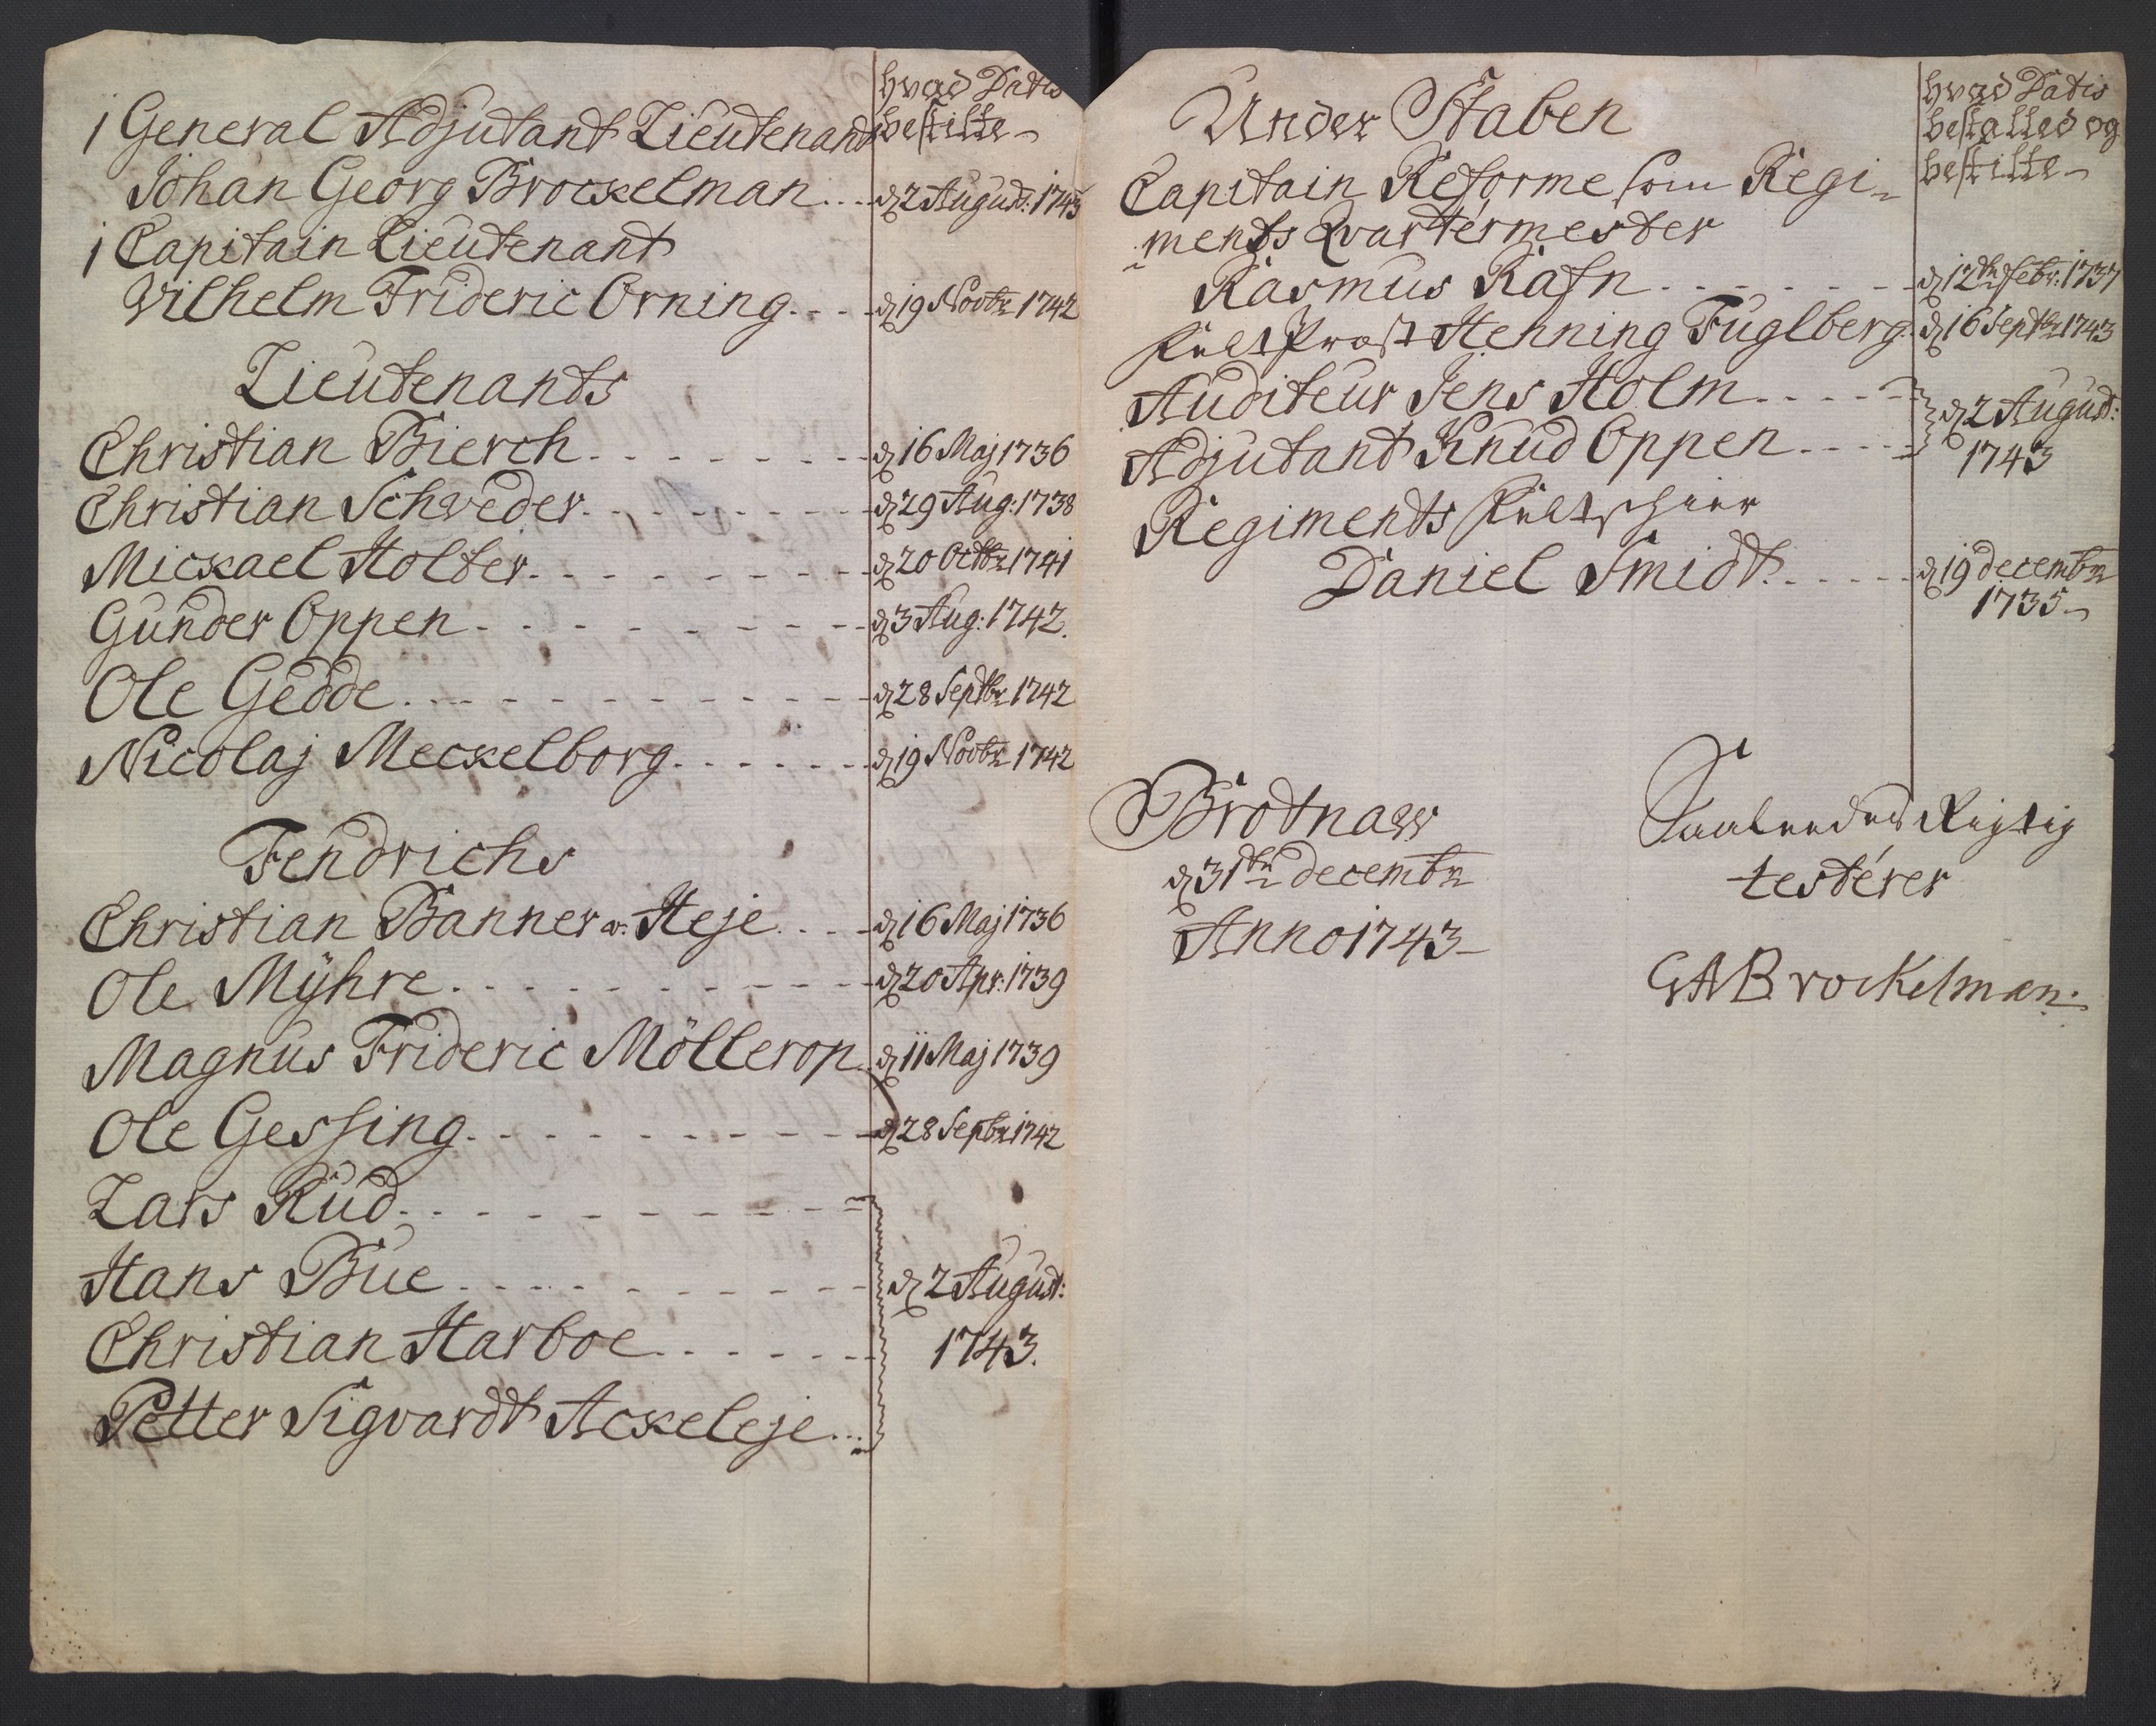 hvad Datis
bestilte
1 General Adjutant Lieutenant
Johan Georg Brockelman .... d 2 August: 1743
1 Capitain Lieutenant
Vilhelm Frideric Orning .... d 19 Novbr 1742
Lieutenants
Christian Bierch .... d 16 Maj 1736
Christian Schweder .... d 29 Aug: 1738
Mickael Holter .... d 20 Octbr 1741
Gunder Oppen .... d 3 Aug: 1742.
Ole Gedde .... d 28 Septbr 1742
Nicolaj Meckelborg .... d 19 Novbr 1742
Fendrichs
Christian Banner v: Heje .... d 16 Maj 1736
Ole Mÿhre .... d 20 Apr: 1739
Magnus Frideric Möllerop .. d 11 Maj 1739
Ole Gessing .... d 28 Sepbr 1742
Lars Rud ....
Hans Bue .... d 2 August:
Christian Harboe .... 1743.
Petter Sigvardt Ackeleje ...
hvad Datis
bestalled og
bestilte
Under Staben
Capitain Reforme som Regi-
ments Qvartérmester
Rasmus Rafn .... d 12te Febr: 1737
FeltPræst Henning Fuglberg. d 16 Septbr 1743
Auditeur Jens Holm .... d 2 August:
Adjutant Knud Oppen .... 1743
Regiments Feltschier
Daniel Smidt .... d 19 decembr
1735
Brotnaw
d 31te decembr
Anno 1743
Saaledes Rigtig
testérer
GABrockelman.